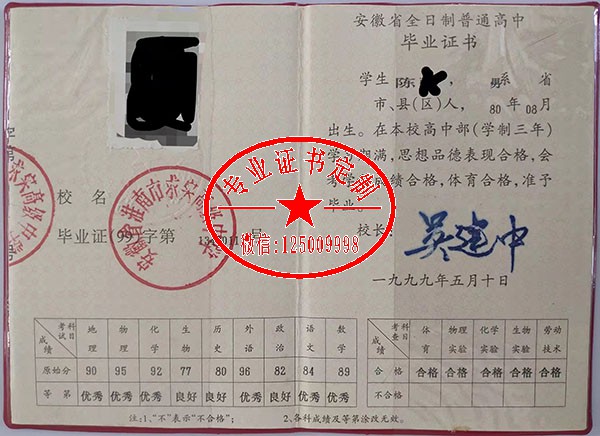 安徽省全日制普通高中
毕业证书
学生 陈 ， 男 系 省
市、县(区)人， 80 年 08 月
出生。在本校高中部(学制三年)
学习期满，思想品德表现合格，会
考学 成绩合格，体育合格，准予
毕业。
校名
校长：
吴建中
毕业证(99)字第 号
一九九九年五月十日
专业证书定制
微信:125009998
安徽省淮南市 高级中
科目 考试 成绩 地理 物理 化学 生物 历史 外语 政治 语文 数学
原始分 90 95 92 77 80 96 82 84 89
等第 优秀 优秀 优秀 良好 良好 优秀 良好 良好 优秀
科目 考查 成绩 体育 物理实验 化学实验 生物实验 劳动技术
合格 合格 合格 合格 合格 合格
不合格
注:1、“不”表示“不合格”; 2、各科成绩及等第涂改无效。